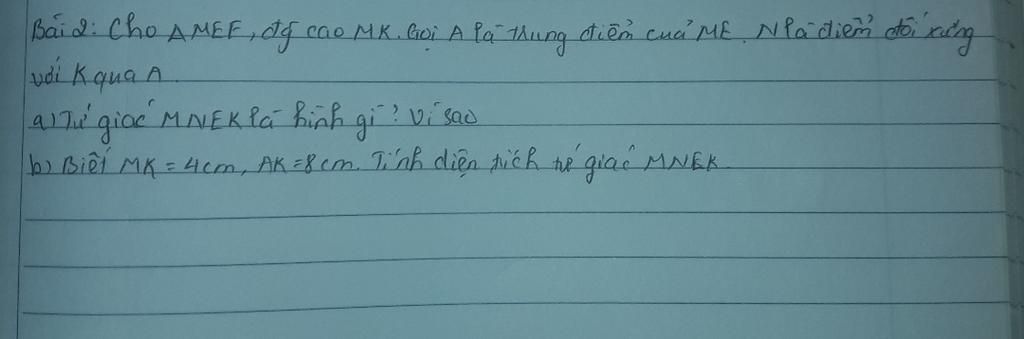 Bài 2: Cho ΔMEF, đg cao MK. Gọi A là trung điểm của ME. N là điểm đối xứng
với K qua A.
a) Tứ giác MNEK là hình gì? Vì sao
b) Biết MK = 4cm, AK = 8cm. Tính diện tích tứ giác MNEK.